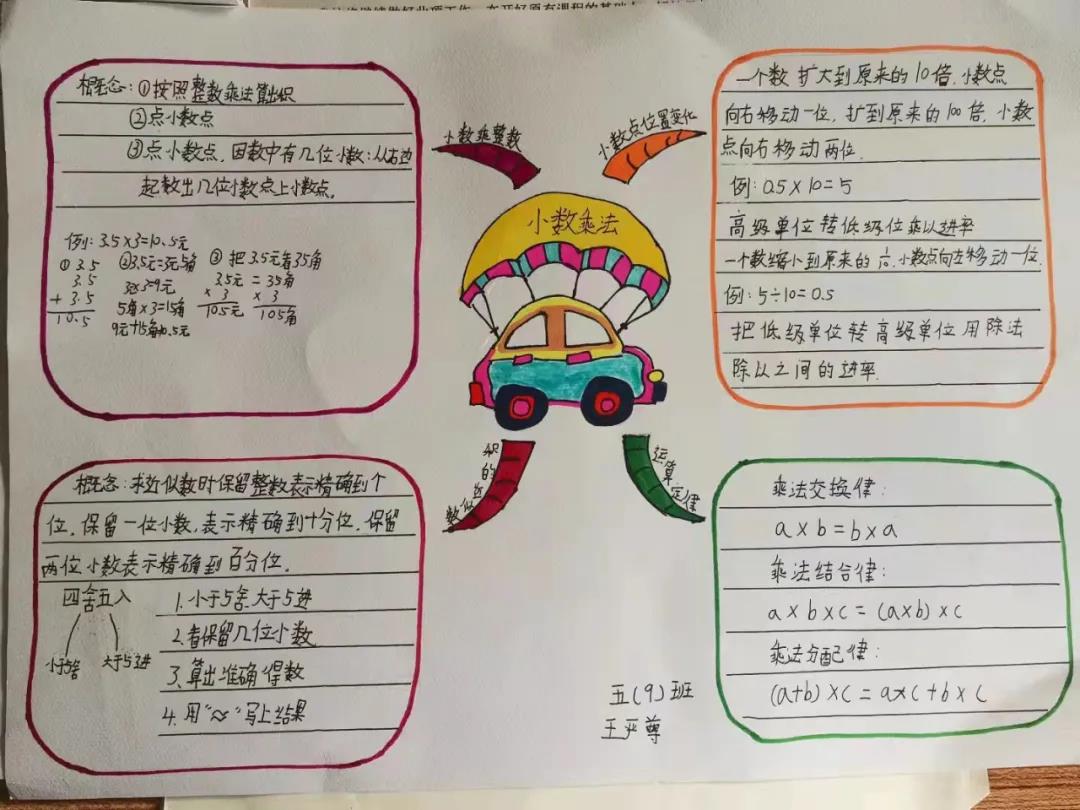 小数乘法
小数乘整数
概念:①按照整数乘法算出积
②点小数点
③点小数点,因数中有几位小数:从右边
起数出几位小数点上小数点.
例:3.5×3=10.5元
① 3.5
3.5
+ 3.5
10.5
②3.5元=3元5角
3×3=9元
5角×3=15角
9元+15角=10.5元
③ 把3.5元看35角
3.5元 = 35角
× 3 × 3
10.5元 105角
小数点位置变化
一个数 扩大到原来的10倍.小数点
向右移动一位,扩到原来的100倍,小数
点向右移动两位.
例:0.5×10=5
高级单位转低级位乘以进率
一个数缩小到原来的 小数点向左移动一位.
例:5÷10=0.5
把低级单位转高级单位用除法
除以之间的进率.
积的近似数
概念:求近似数时保留整数表示精确到个
位.保留一位小数,表示精确到十分位.保留
两位小数表示精确到百分位.
四舍五入
小于5舍 大于5进
1.小于5舍.大于5进
2.看保留几位小数
3.算出准确得数
4.用“≈”写上结果
运算定律
乘法交换律:
a×b=b×a
乘法结合律:
a×b×c=(a×b)×c
乘法分配律:
(a+b)×c=a×c+b×c
五(9)班
王严尊